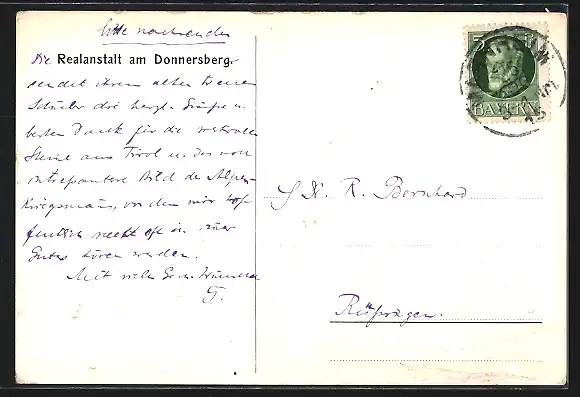 Bitte nachsenden
Die Realanstalt am Donnersberg.
sendet ihrem alten treuen
Schüler die herzl. Grüße u.
besten Dank für die wertvollen
Steine aus Tirol u. das
interessante Bild des Alpen-
Kriegsmanns, von dem wir hof-
fentlich recht oft in
Gutes hören werden.
Mit vielen
G.
5
BAYERN
R. Bernhard